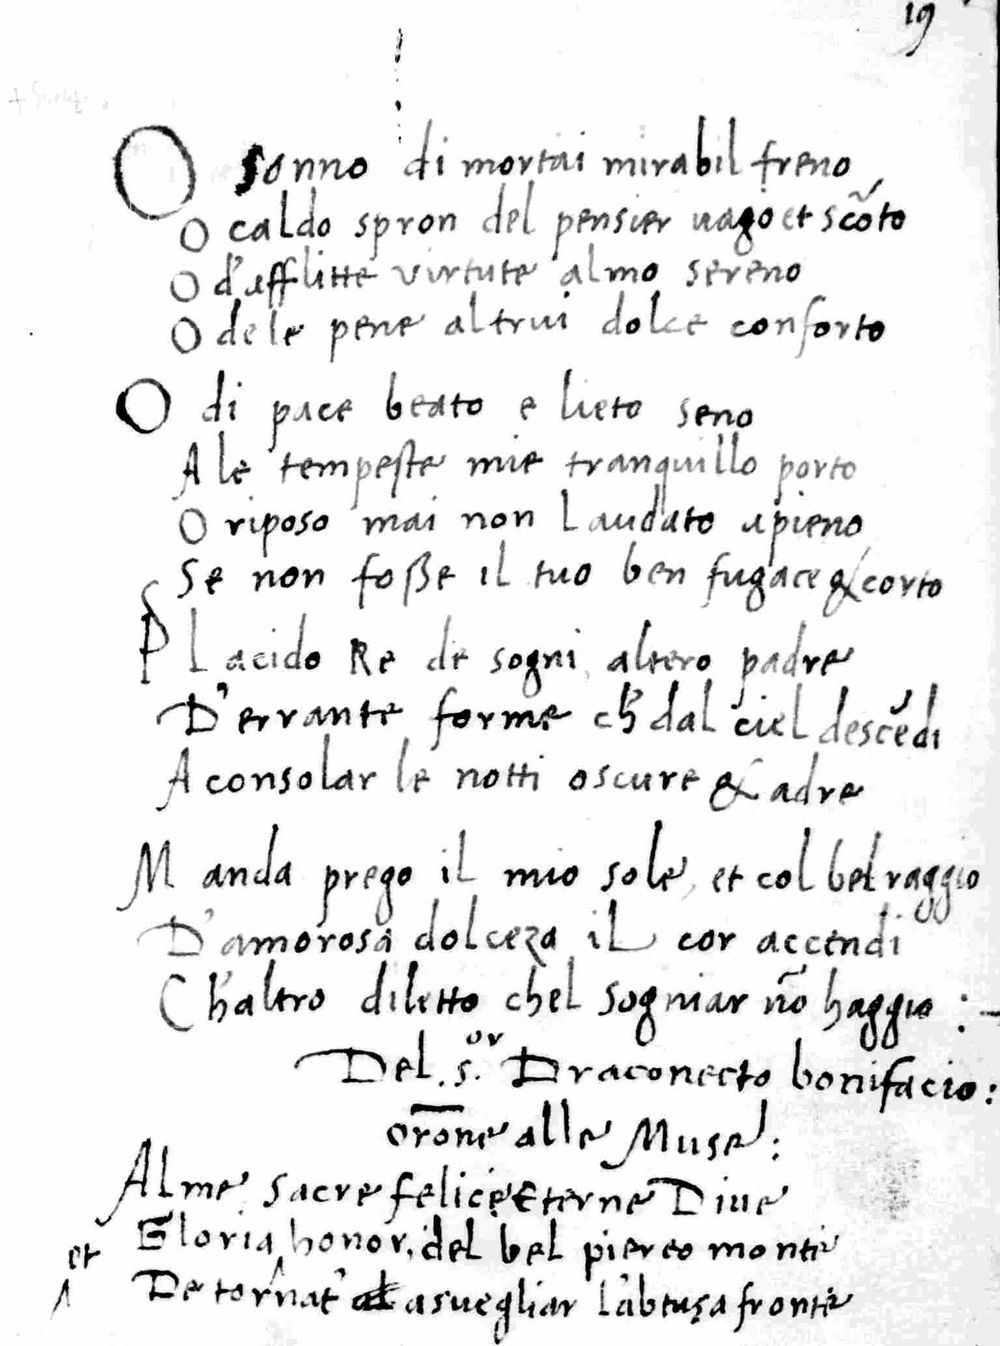 19
O sonno di mortai mirabil freno
O caldo spron del pensier uago et scõto
O d'afflitte virtute almo sereno
O dele pene altrui dolce conforto
O di pace beato e lieto seno
A le tempeste mie tranquillo porto
O riposo mai non laudato apieno
Se non foße il tuo ben fugace & corto
Placido Re de sogni altero padre
D'errante forme ch' dal ciel descẽdi
A consolar le notti oscure & adre
Manda prego il mio sole, et col bel raggio
D'amorosa dolceza il cor accendi
Ch'altro diletto chel sogniar nõ haggio :-
Del. s.or Draconecto bonifacio:
orõne alle Muse:
Alme, sacre felice Eterne Diue
et Gloria, honor, del bel piereo monte
De tornat' asuegliar l'abtusa fronte